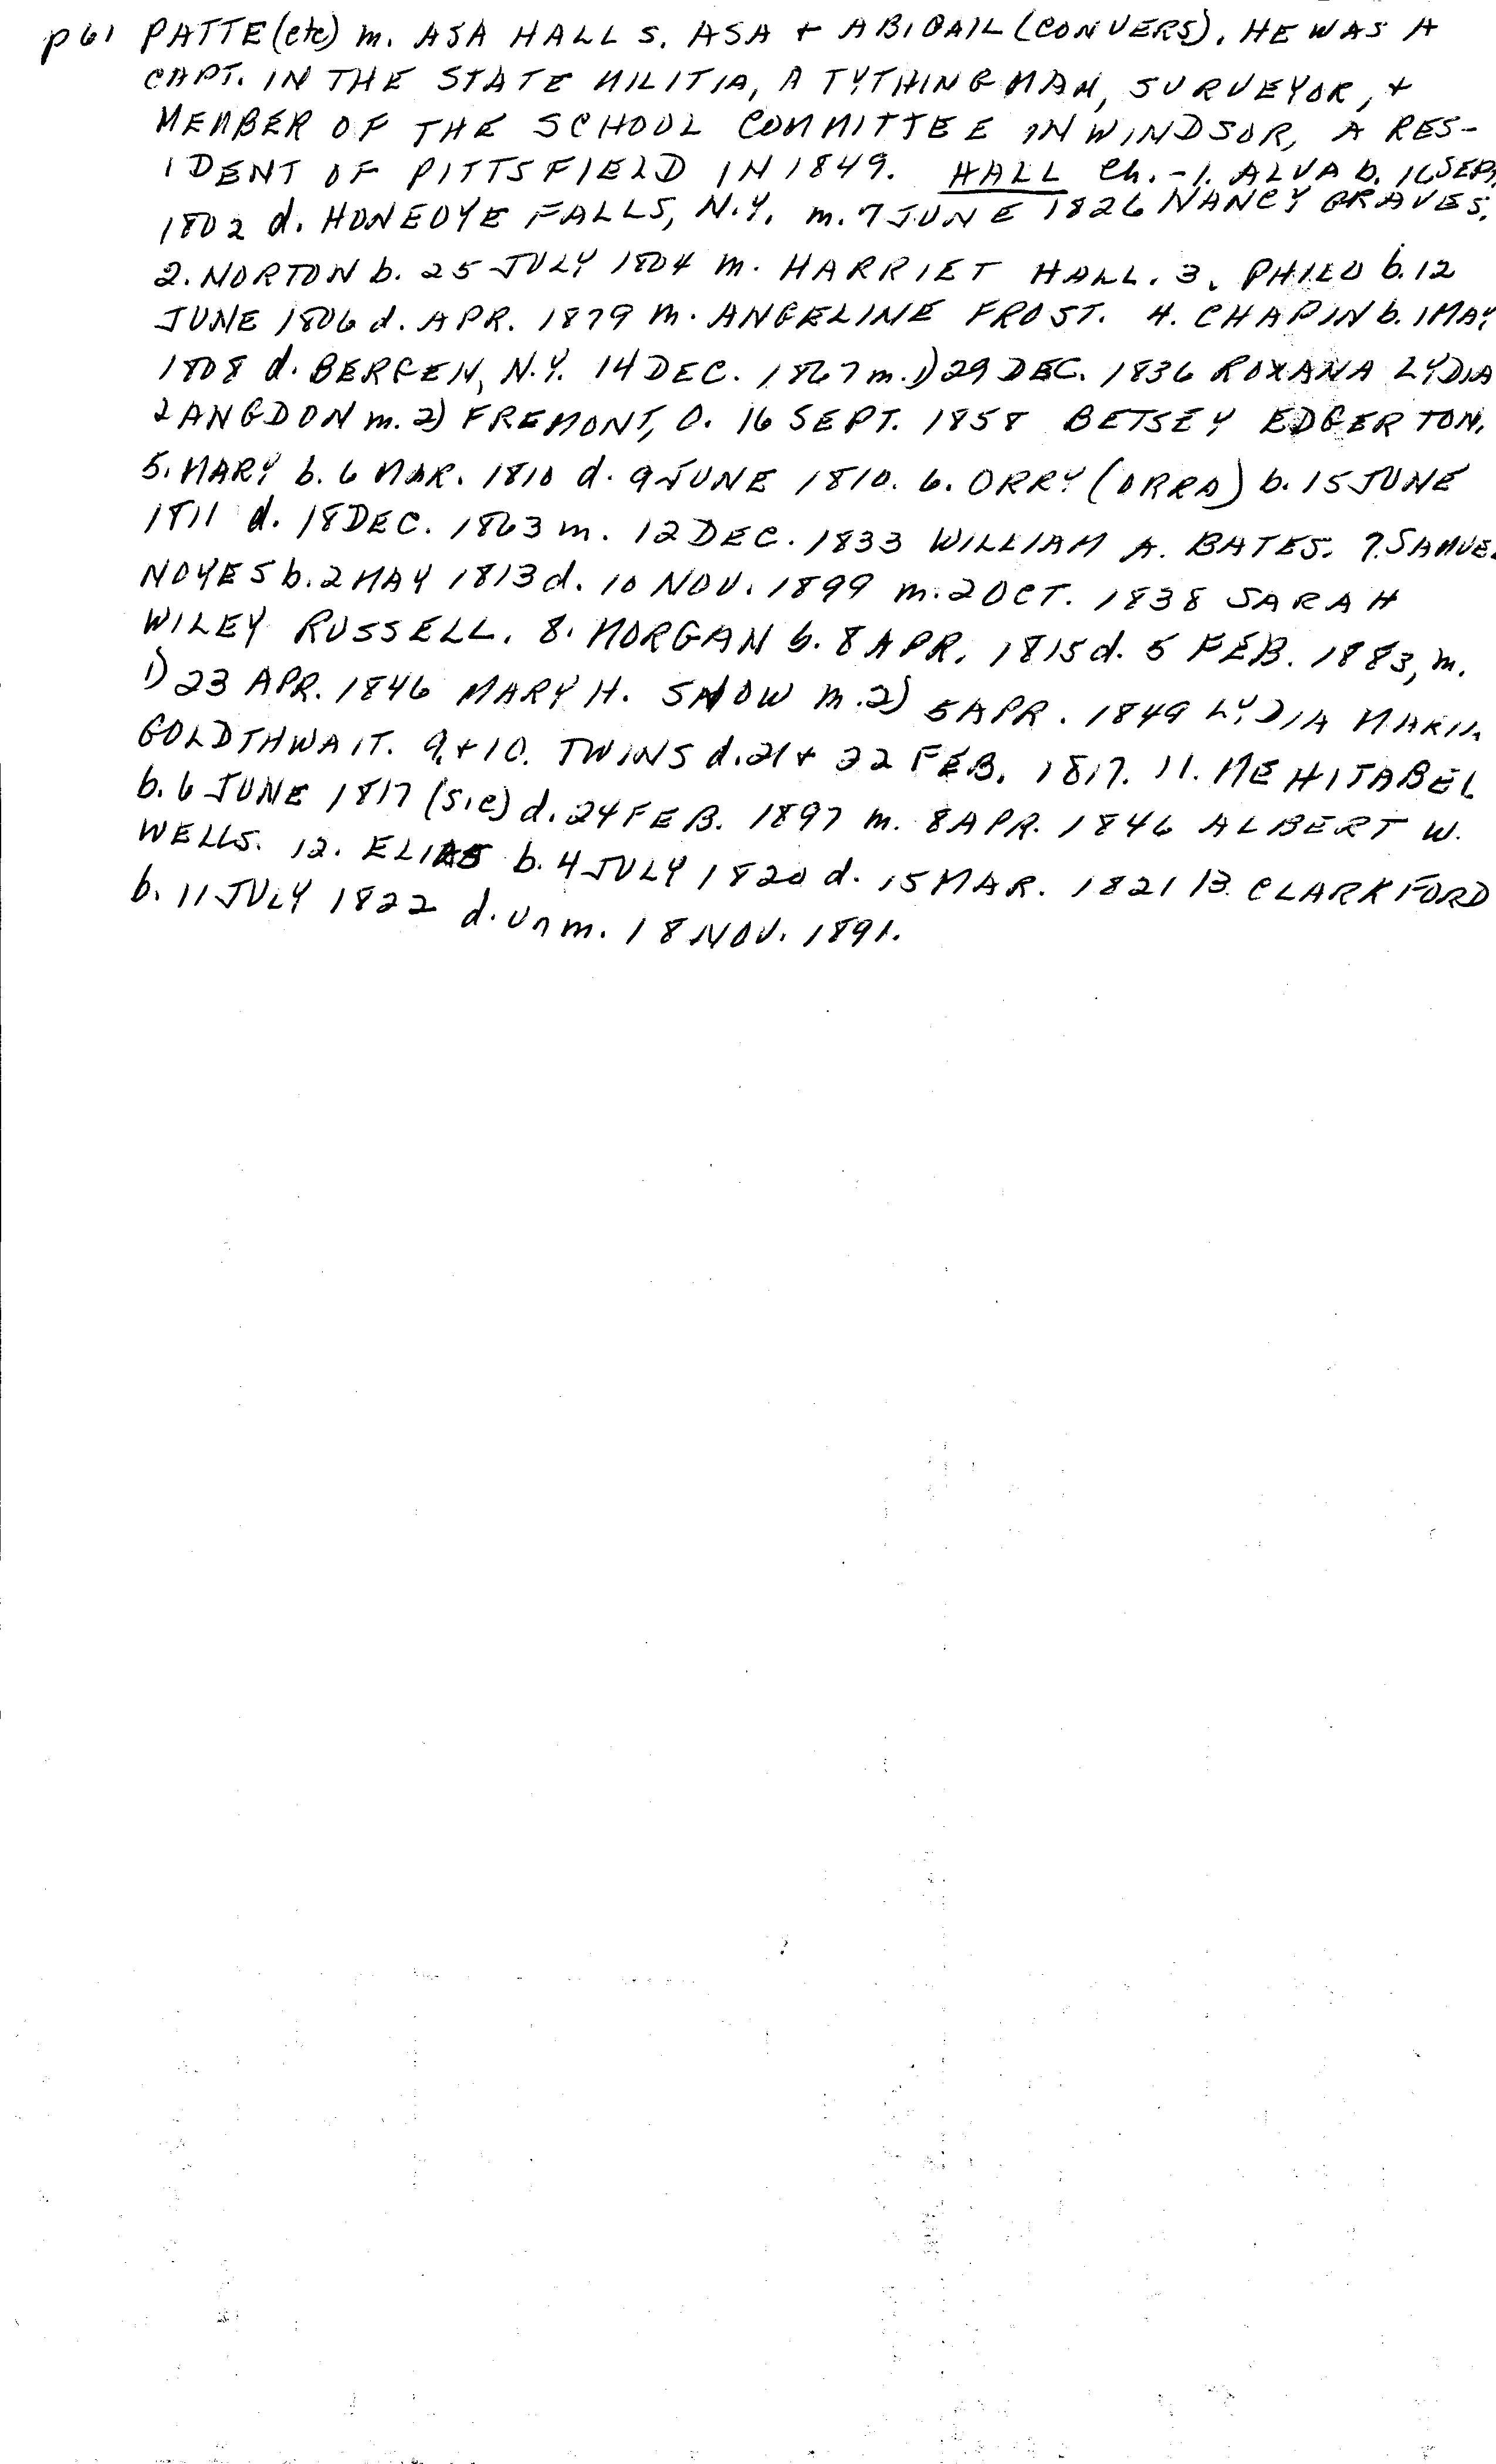 p 61 PATTE (etc) m. ASA HALL s. ASA + ABIGAIL (CONVERS). HE WAS A
CAPT. IN THE STATE MILITIA, A TYTHINGMAN, SURVEYOR, +
MEMBER OF THE SCHOOL COMMITTEE IN WINDSOR, A RES-
IDENT OF PITTSFIELD IN 1849. HALL Ch. - 1. ALVA b. 16 SEP.
1802 d. HONEOYE FALLS, N.Y. m. 7 JUNE 1826 NANCY GRAVES.
2. NORTON b. 25 JULY 1804 m. HARRIET HALL. 3. PHILO b. 12
JUNE 1806 d. APR. 1879 m. ANGELINE FROST. 4. CHAPIN b. 1 MAY
1808 d. BERGEN, N.Y. 14 DEC. 1867 m. 1) 29 DEC. 1836 ROXANA LYDIA
LANGDON m. 2) FREMONT, O. 16 SEPT. 1858 BETSEY EDGERTON.
5. MARY b. 6 MAR. 1810 d. 9 JUNE 1810. 6. ORRY (ORRA) b. 15 JUNE
1811 d. 18 DEC. 1863 m. 12 DEC. 1833 WILLIAM A. BATES. 7. SAMUEL
NOYES b. 2 MAY 1813 d. 10 NOV. 1899 m. 2 OCT. 1838 SARAH
WILEY RUSSELL. 8. MORGAN b. 8 APR. 1815 d. 5 FEB. 1883, m.
1) 23 APR. 1846 MARY H. SNOW m. 2) 5 APR. 1849 LYDIA MARIA
GOLDTHWAIT. 9. + 10. TWINS d. 21 + 22 FEB. 1817. 11. MEHITABEL
b. 6 JUNE 1817 (sic) d. 24 FEB. 1897 m. 8 APR. 1846 ALBERT W.
WELLS. 12. ELIAS b. 4 JULY 1820 d. 15 MAR. 1821 13. CLARK FORD
b. 11 JULY 1822 d. unm. 18 NOV. 1891.